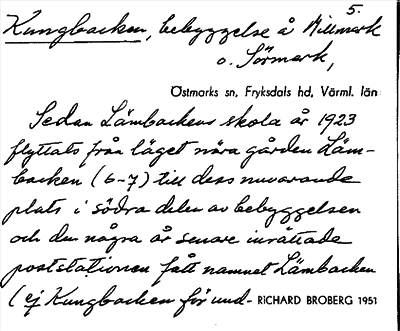 5.
Kungbacken, bebyggelse å Millmark
o. Sörmark,
Östmarks sn, Fryksdals hd, Värml. län
Sedan Lämbackens skola år 1923
flyttats från läget nära gården Läm-
backen (6-7) till dess nuvarande
plats i södra delen av bebyggelsen
och den några år senare inrättade
poststationen fått namnet Lämbacken
(ej Kungbacken för und- RICHARD BROBERG 1951